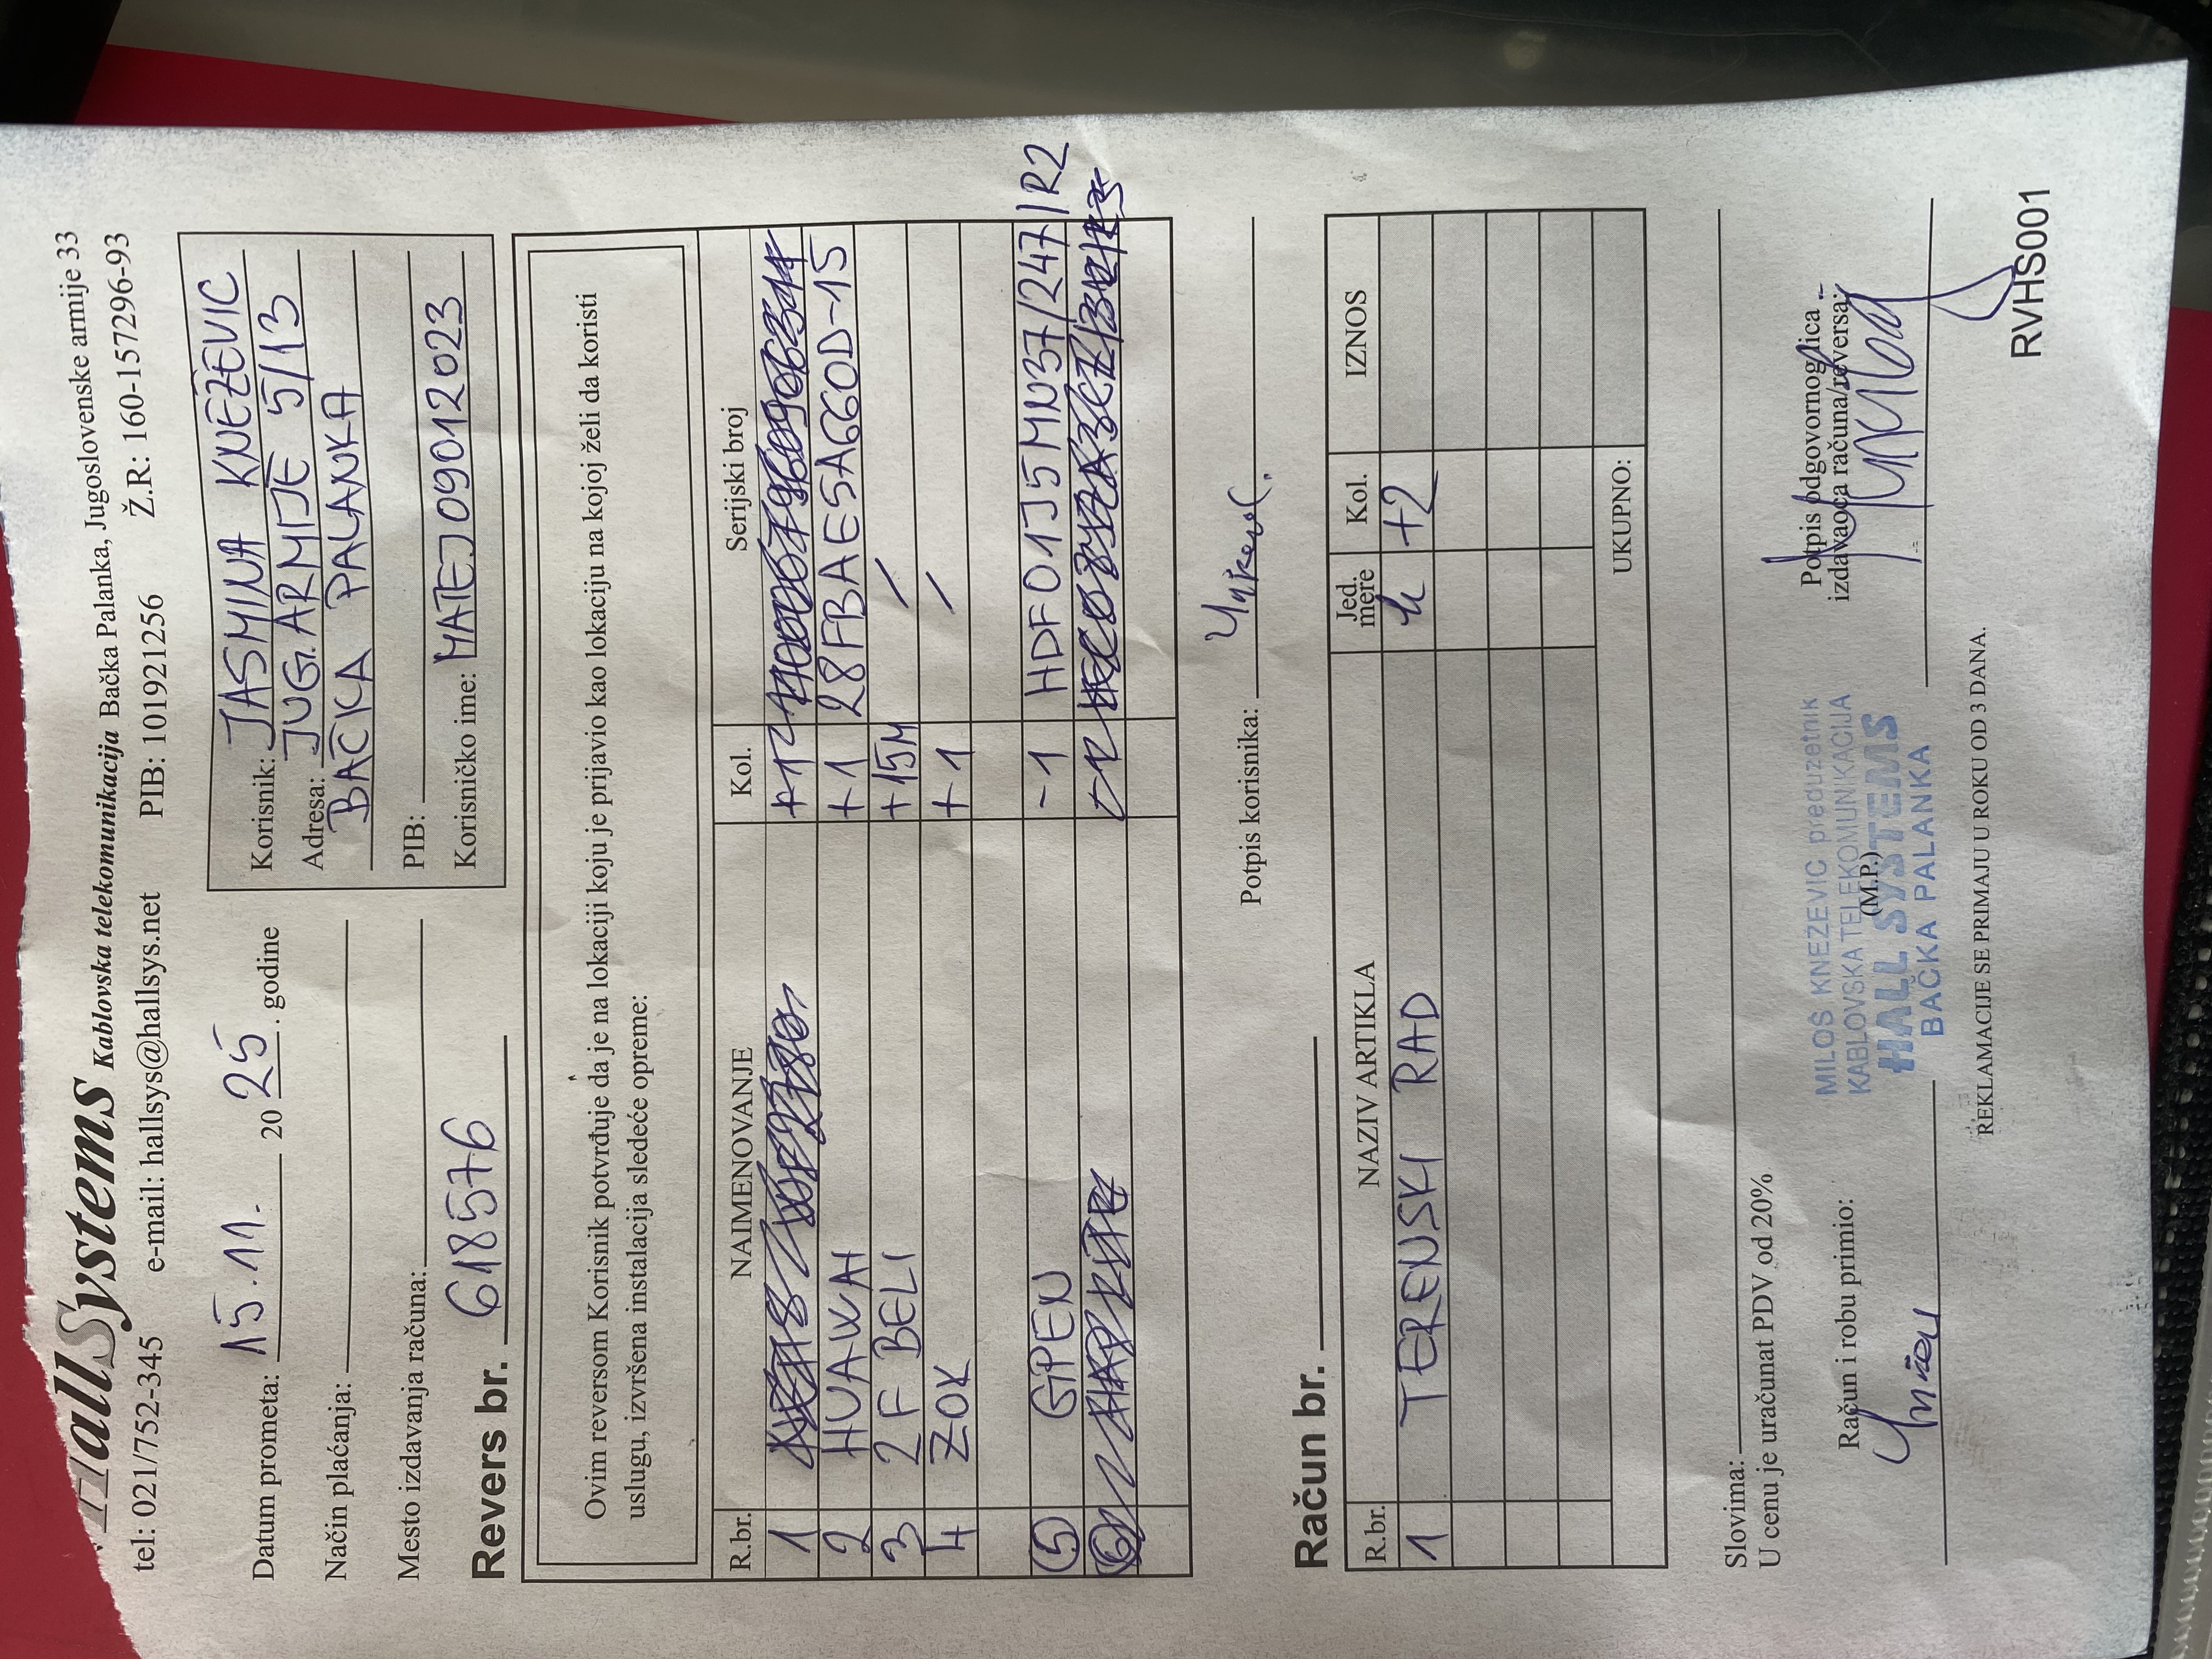 HallSystems Kablovska telekomunikacija Bačka Palanka, Jugoslovenske armije 33
tel: 021/752-345 e-mail: hallsys@hallsys.net PIB: 101921256 Ž.R: 160-157296-93
Datum prometa: 15.11. 20 25. godine
Način plaćanja:
Mesto izdavanja računa:
Revers br. 618576
Korisnik: JASMINA KNEŽEVIĆ
Adresa: JUG. ARMIJE 5/13
BAČKA PALANKA
PIB:
Korisničko ime: MATEJ09012023
Ovim reversom Korisnik potvrđuje da je na lokaciji koju je prijavio kao lokaciju na kojoj želi da koristi
uslugu, izvršena instalacija sledeće opreme:
R.br. NAIMENOVANJE Kol. Serijski broj
1
2 HUAWAI +1 28FBAE5A660D-15
3 2F BELI +15M /
4 ZOK +1 /
5 GPEN -1 HDF01J5MN37/247/R2
6
Potpis korisnika:
Račun br.
R.br. NAZIV ARTIKLA Jed. mere Kol. IZNOS
1 TERENSKI RAD h +2
UKUPNO:
Slovima:
U cenu je uračunat PDV od 20%
Račun i robu primio:
(M.P.)
MILOS KNEZEVIC preduzetnik
KABLOVSKA TELEKOMUNIKACIJA
HALL SYSTEMS
BAČKA PALANKA
Potpis odgovornog lica
izdavaoca računa/reversa:
REKLAMACIJE SE PRIMAJU U ROKU OD 3 DANA.
RVHS001